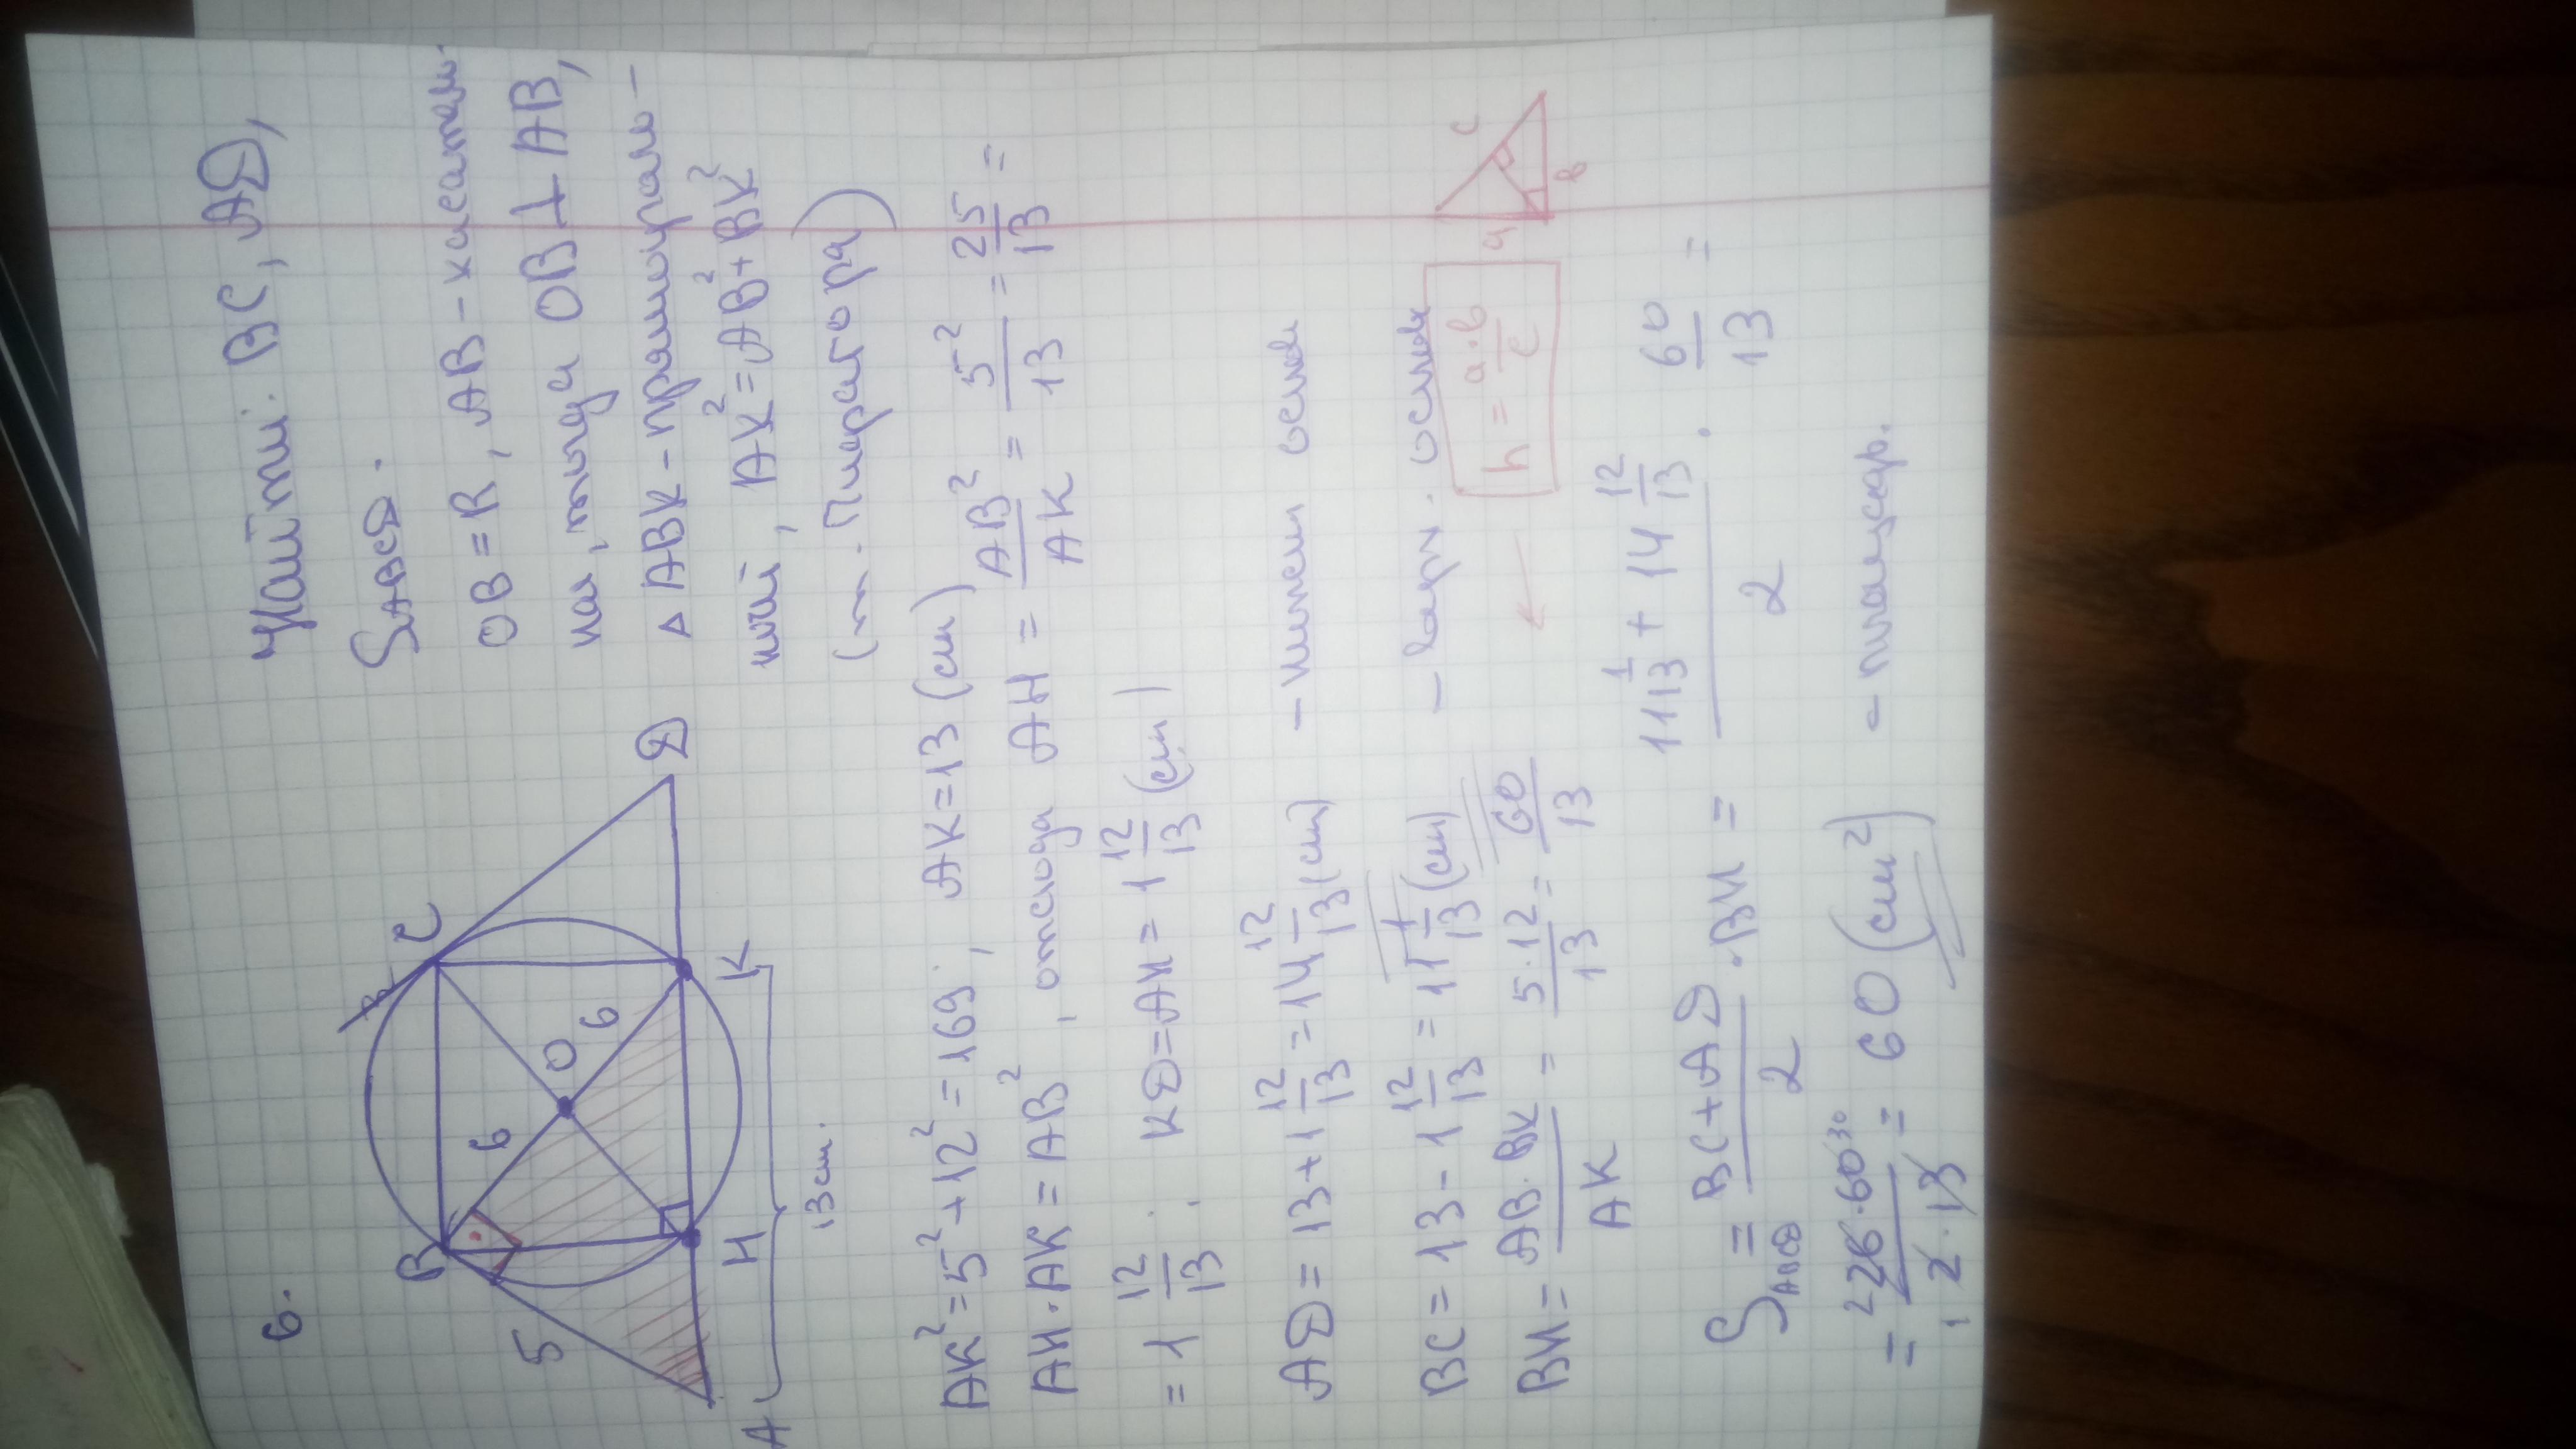 6.
Найти: BC, AD,
SABCD.
OB = R, AB - касатель-
ная, тогда OB ⊥ AB,
△ ABK - прямоуголь-
ный, AK² = AB² + BK²
(т. Пифагора)
B
C
D
K
H
A
O
5
6
6
13 см.
AK² = 5² + 12² = 169; AK = 13 (см)
AH · AK = AB², отсюда AH = AB²/AK = 5²/13 = 25/13 =
= 1 12/13. KD = AH = 1 12/13 (см)
AD = 13 + 1 12/13 = 14 12/13 (см) - нижн. основ
BC = 13 - 1 12/13 = 11 1/13 (см) - верх. основ
BH = AB · BK/AK = 5 · 12/13 = 60/13
h = a · b/c
a
b
c
SABCD = BC + AD/2 · BH = 11 1/13 + 14 12/13/2 · 60/13 =
= 26 · 60/2 · 13 = 60 (см²) - площадь.